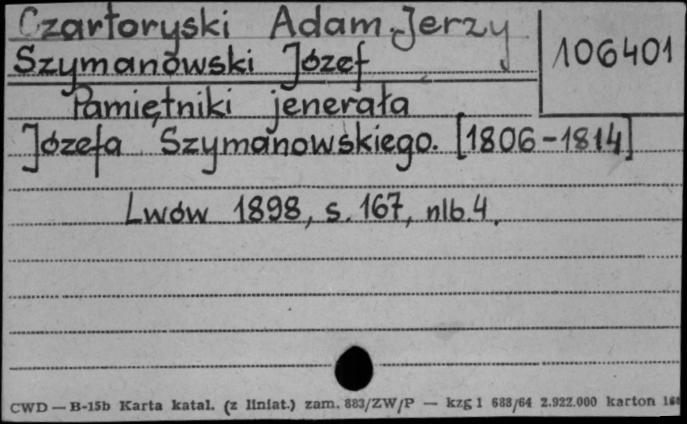 Czartoryski Adam Jerzy
106401
Szymanowski Józef
Pamiętniki jenerała
Józefa Szymanowskiego. [1806-1814]
Lwów 1898, s. 167, nlb. 4.
CWD — B-15b Karta katal. (z liniat.) zam. 883/ZW/P — kzg 1 688/64 2.922.000 karton